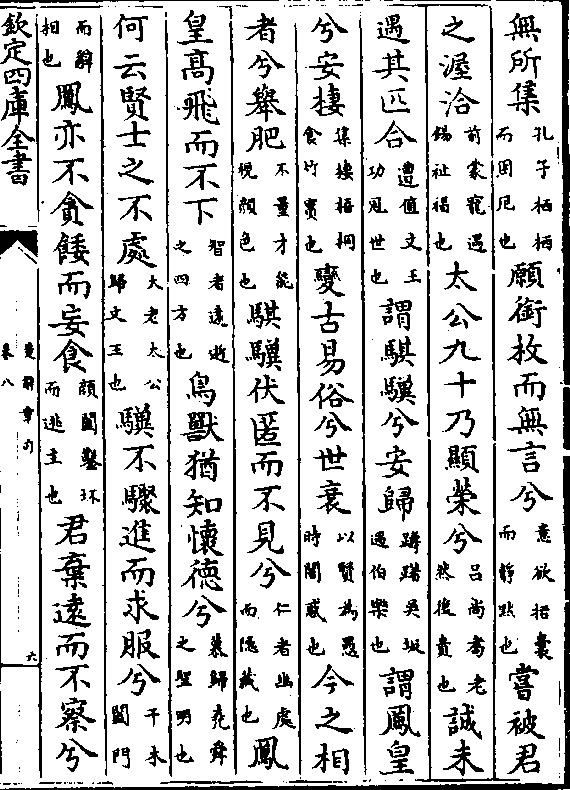 無所集孔子栖栖而困厄也願銜枚而無言兮意欲括囊而靜默也嘗被君
之渥洽前蒙寵遇錫祉福也太公九十乃顯榮兮呂尚耆老然後貴也誠未
遇其匹合遭值文王功冠世也謂騏驥兮安歸躊躇吳坂遇伯樂也謂鳳皇
兮安棲集棲梧桐食竹實也變古易俗兮世衰以賢為愚時闇惑也今之相
者兮舉肥不量才能悅顔色也騏驥伏匿而不見兮仁者幽處而隱藏也鳳
皇髙飛而不下智者遠逝之四方也鳥獸猶知懷德兮慕歸堯舜之聖明也
何云賢士之不處大老太公歸文王也驥不驟進而求服兮干木闔門
而辭相也鳳亦不貪餧而妄食顔闔鑿坏而逃主也君棄遠而不察兮
欽定四庫全書
楚辭章句
卷八
六